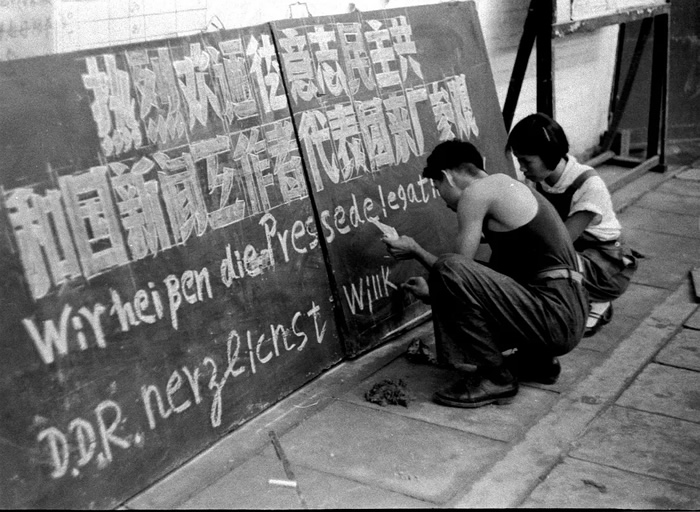 热烈欢迎德意志民主共
和国新闻工作者代表团来广参观
Wir heißen die Pressedelegati
D.D.R. herzlichst Willk